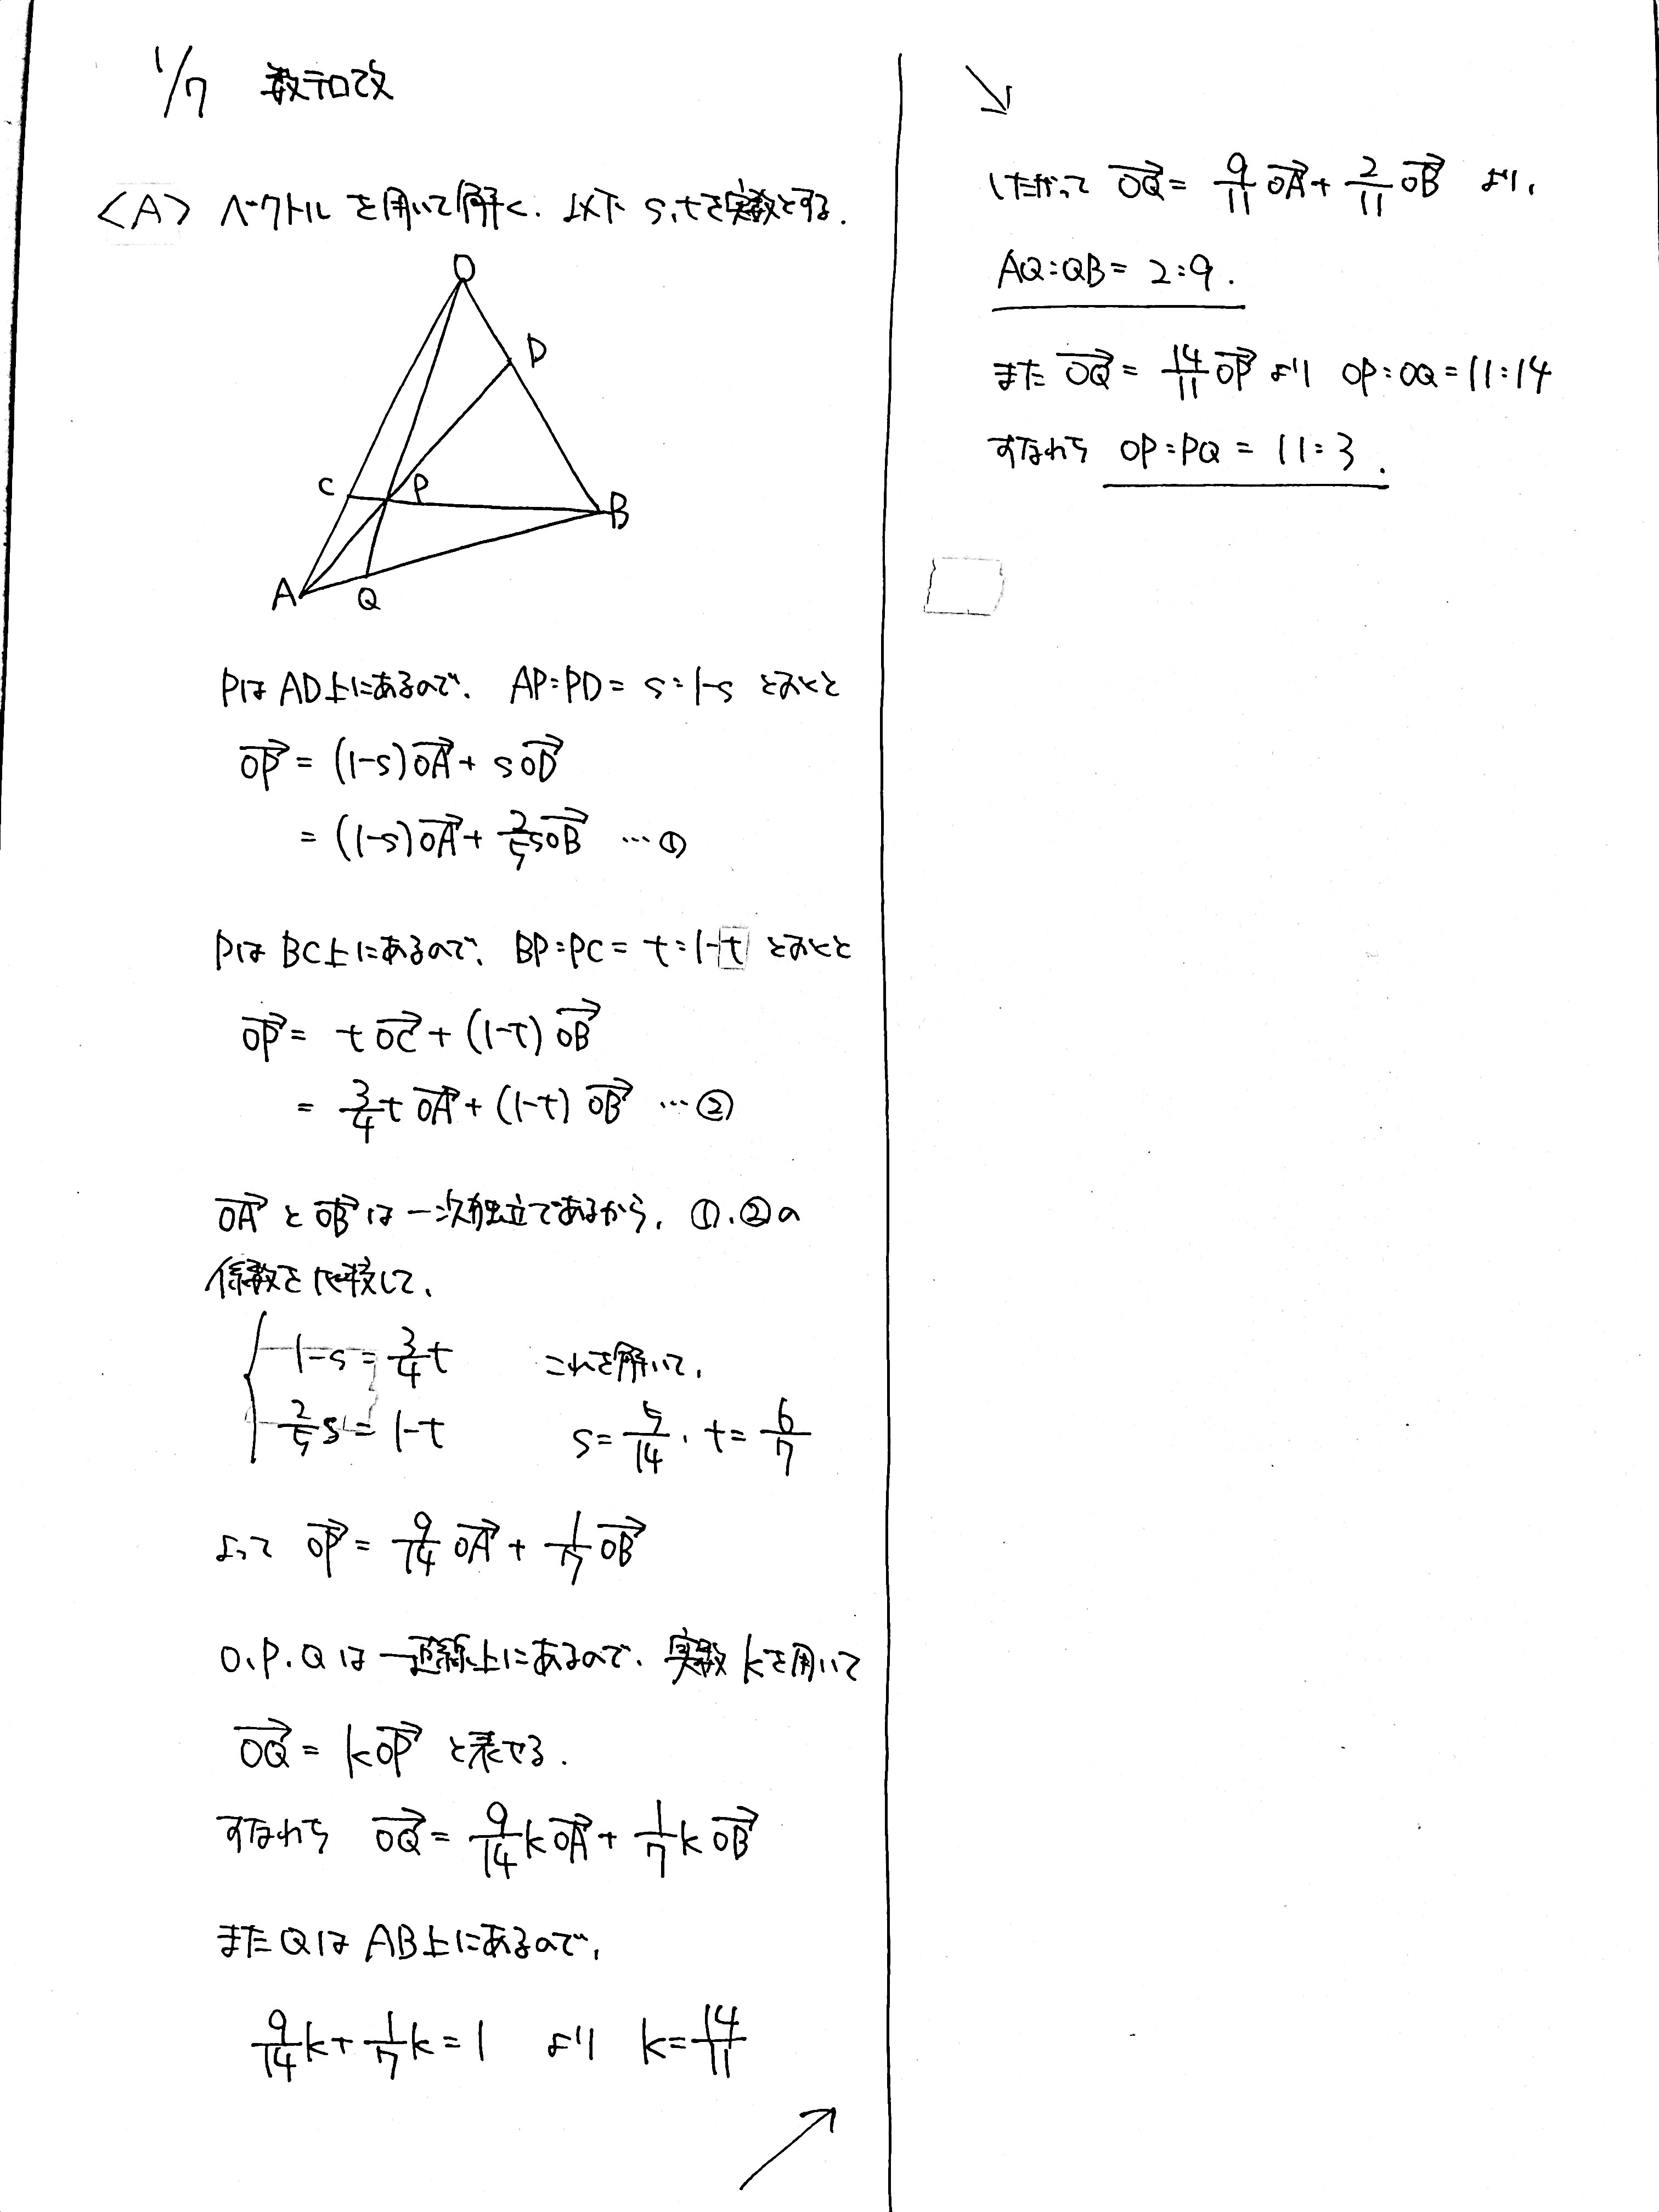 1/7 数テロ改
<A> ベクトルを用いて解く. 以下 s, tを実数とする.
O
D
C
P
B
A
Q
PはAD上にあるので、 AP:PD = s:1-s とおくと
→OP = (1-s)→OA + s→OD
= (1-s)→OA + 2/5 s→OB …①
PはBC上にあるので、 BP:PC = t:1-t とおくと
→OP = t→OC + (1-t)→OB
= 3/4 t→OA + (1-t)→OB …②
→OA と →OB は一次独立であるから, ①, ②の
係数を比較して,
1-s = 3/4 t これを解いて,
2/5 s = 1-t s = 5/14, t = 6/7
よって →OP = 9/14 →OA + 1/7 →OB
O, P, Q は一直線上にあるので, 実数 kを用いて
→OQ = k→OP と表せる.
すなわち →OQ = 9/14 k→OA + 1/7 k→OB
またQはAB上にあるので,
9/14 k + 1/7 k = 1 より k = 14/11
↗
↘
したがって →OQ = 9/11 →OA + 2/11 →OB より,
AQ:QB = 2:9.
また →OQ = 14/11 →OP より OP:OQ = 11:14
すなわち OP:PQ = 11:3.